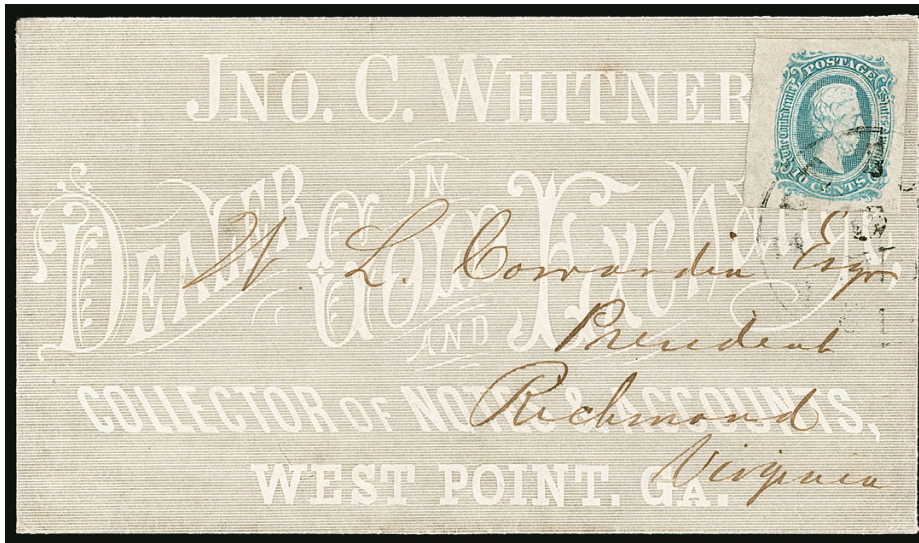 JNO. C. WHITNER
DEALER IN GOLD AND EXCHANGE
COLLECTOR OF NOTES & ACCOUNTS,
WEST POINT, GA.
POSTAGE
The Confederate States
10 CENTS
W. L. Cowardin Esqr
President
Richmond
Virginia